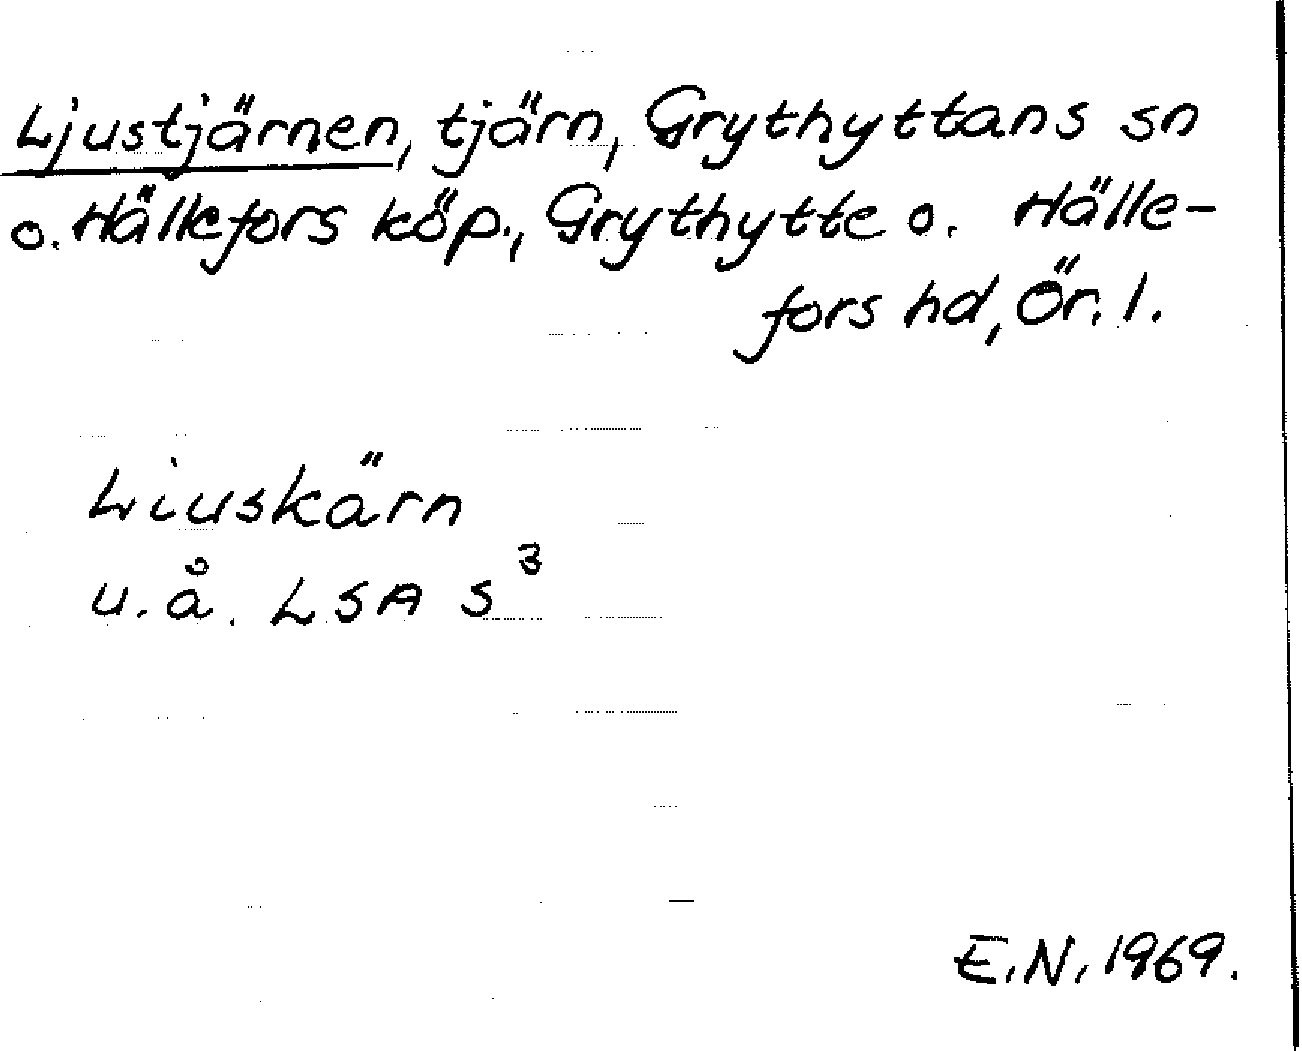 Ljustjärnen, tjärn, Grythyttans sn
o. Hällefors köp., Grythytte o. Hälle-
fors hd, Ör. l.
Liuskärn
u. å. LSA S³
E.N. 1969.